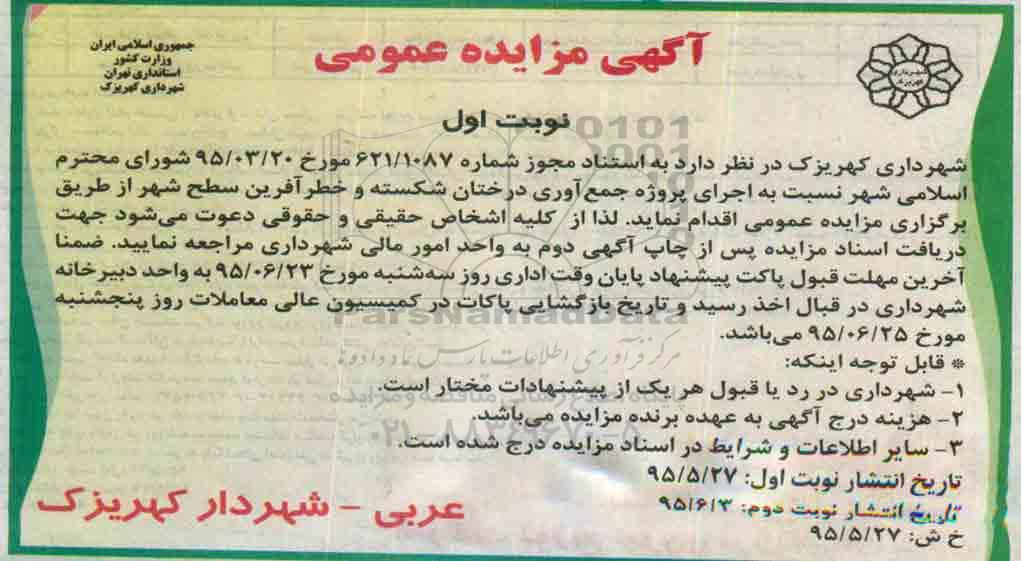 جمهوری اسلامی ایران
وزارت کشور
استانداری تهران
شهرداری کهریزک
آگهی مزایده عمومی
شهرداری
کهریزک
نوبت اول
شهرداری کهریزک در نظر دارد به استناد مجوز شماره ۶۲۱/۱۰۸۷ مورخ ۹۵/۰۳/۲۰ شورای محترم
اسلامی شهر نسبت به اجرای پروژه جمع‌آوری درختان شکسته و خطرآفرین سطح شهر از طریق
برگزاری مزایده عمومی اقدام نماید. لذا از کلیه اشخاص حقیقی و حقوقی دعوت می‌شود جهت
دریافت اسناد مزایده پس از چاپ آگهی دوم به واحد امور مالی شهرداری مراجعه نمایید. ضمنا
آخرین مهلت قبول پاکت پیشنهاد پایان وقت اداری روز سه‌شنبه مورخ ۹۵/۰۶/۲۳ به واحد دبیرخانه
شهرداری در قبال اخذ رسید و تاریخ بازگشایی پاکات در کمیسیون عالی معاملات روز پنجشنبه
مورخ ۹۵/۰۶/۲۵ می‌باشد.
ParsNamadData
مرکز فرآوری اطلاعات پارس نماد داده‌ها
* قابل توجه اینکه:
۱- شهرداری در رد یا قبول هر یک از پیشنهادات مختار است.
۲- هزینه درج آگهی به عهده برنده مزایده می‌باشد.
۳- سایر اطلاعات و شرایط در اسناد مزایده درج شده است.
تاریخ انتشار نوبت اول: ۹۵/۵/۲۷
تاریخ انتشار نوبت دوم: ۹۵/۶/۳
خ ش: ۹۵/۵/۲۷
عربی - شهردار کهریزک